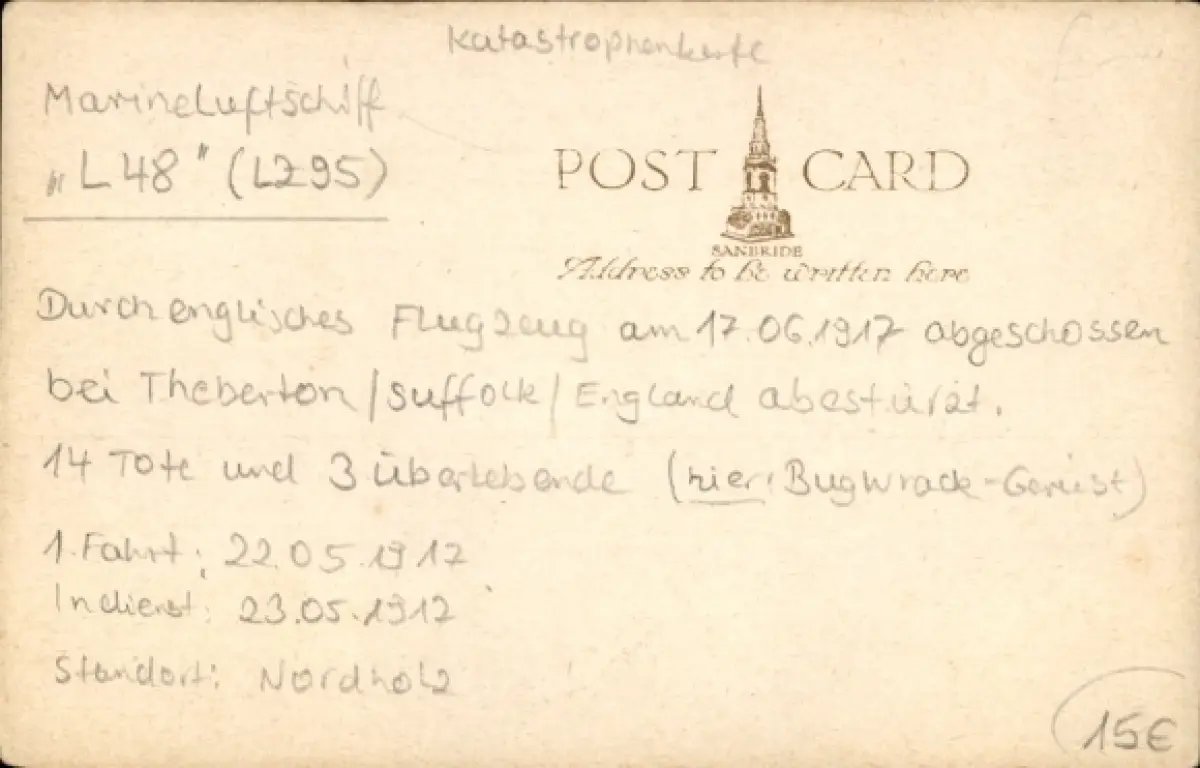 Katastrophenkarte
Marineluftschiff
„L 48" (LZ95)
POST CARD
SANBRIDE
Address to be written here
Durch englisches Flugzeug am 17.06.1917 abgeschossen
bei Theberton/Suffolk/England abestürzt.
14 Tote und 3 Überlebende (hier: Bugwrack-Gerüst)
1. Fahrt: 22.05.1917
Indienst: 23.05.1917
Standort: Nordholz
15€